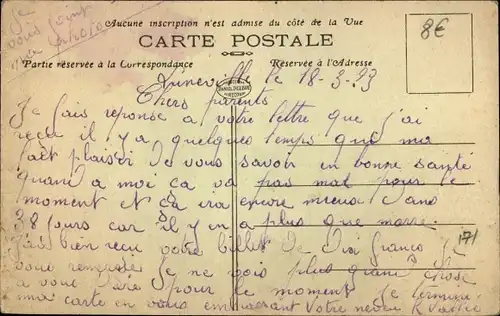 Je
vous
Aucune inscription n'est admise du côté de la Vue
8€
CARTE POSTALE
Partie réservée à la Correspondance
Réservée à l'Adresse
Luneville le 18-3-23
Chers parents
Je fais reponse a votre lettre que j'ai
recu il y a quelques temps qui ma
fait plaisir de vous savoir en bonne santé
quand a moi ca va pas mal pour le
moment et ca ira encore mieux dans
38 jours car il y en a plus que marre.
J'ai bien recu votre billet de dix francs je
171
vous remercie Je ne vois plus grand chose
a vous dire pour le moment Je termine
ma carte en vous embrassant Votre neveu R